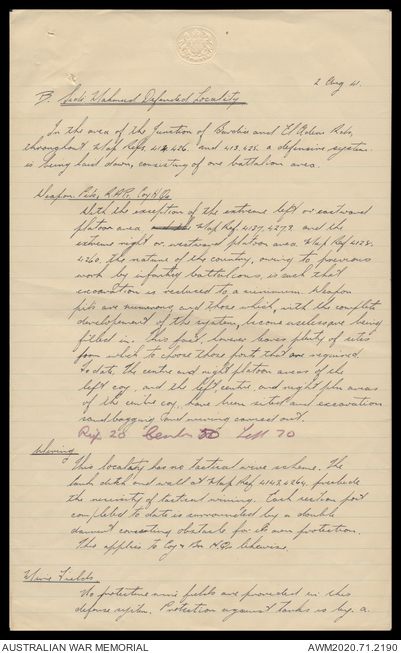 2 Aug 41.
B. Sidi Mahmud Defended Locality
In the area of the junction of Bardia and El Adem Rds,
throughout Map Refs. 414,426. and 413,425. a defensive system
is being laid down, consisting of one battalion area.
Weapon Pits, R.A.P., Coy H.Qs
With the exception of the extreme left or eastward
platoon area, Map Ref 4137,4272 and the
extreme right or westward platoon area, Map Ref 4128,
4260, the nature of the country, owing to previous
work by infantry battalions, is such that
excavation is reduced to a minimum. Weapon
pits are numerous and those which, with the complete
development of the system, become useless are being
filled in. This fact, leaves plenty of sites
from which to choose those posts that are required.
To date, the centre and right platoon areas of the
left coy, and the left, centre, and right pltn areas
of the centre coy, have been sited and excavation
sandbagging and wiring carried out.
Rig 20 Center 50 Left 70
Wiring
This locality has no tactical wire scheme. The
tank ditch and wall at Map Ref 4143,4264, preclude
the necessity of tactical wiring. Each section post
completed to date is surrounded by a double
dannert concertina obstacle for its own protection.
This applies to Coy & Bn H.Qs likewise.
Mine Fields
No protective mine fields are provided in this
defence system. Protection against tanks is by a
AUSTRALIAN WAR MEMORIAL
AWM2020.71.2190